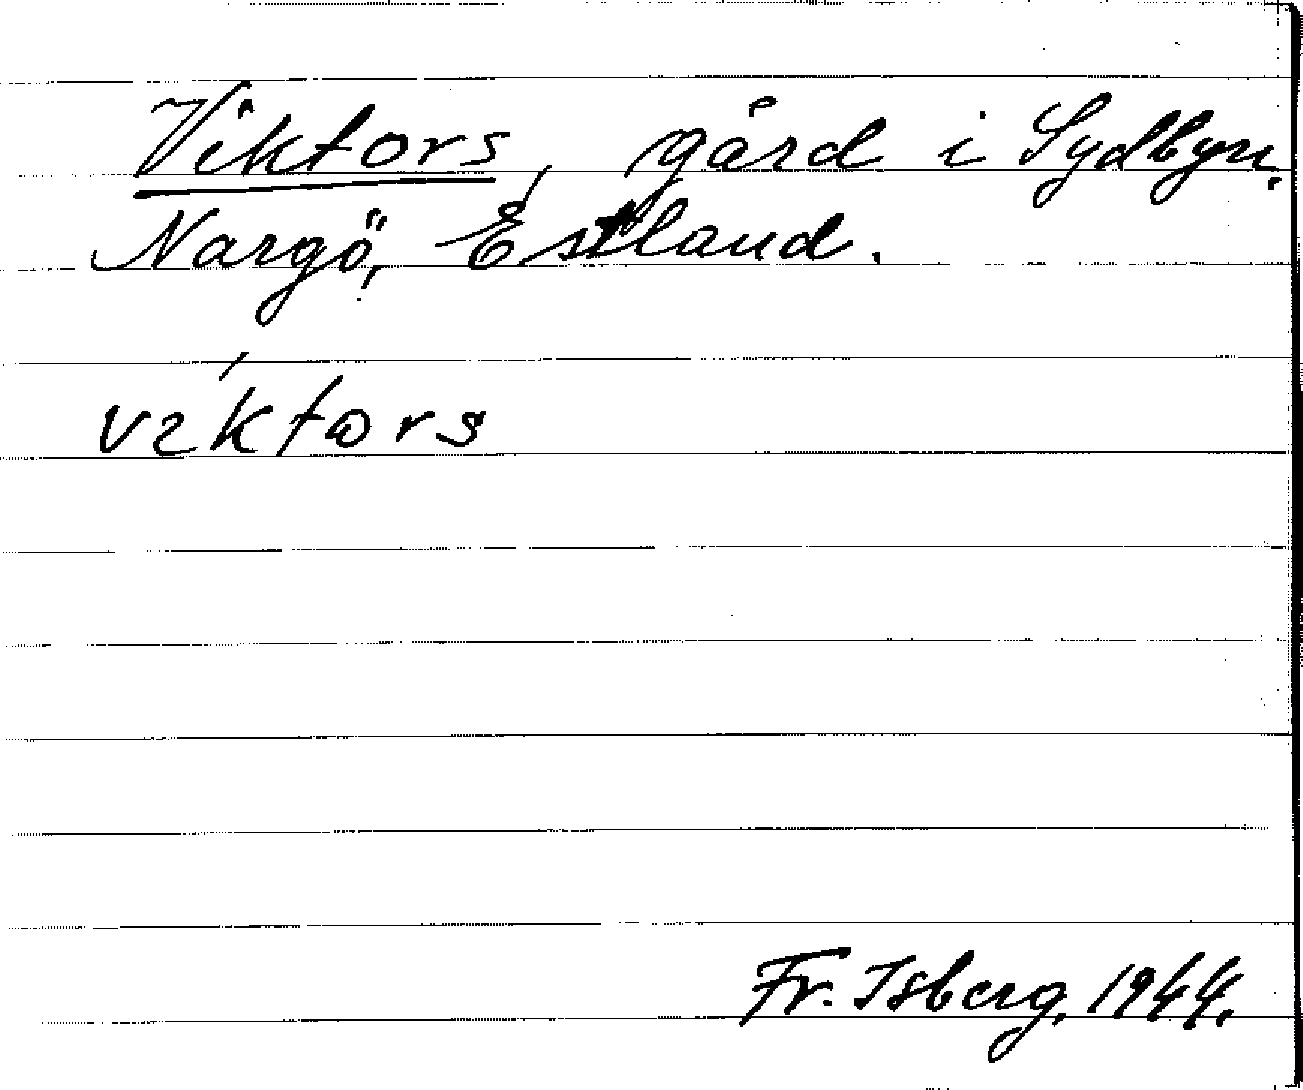 Viktors, gård i Sydbyn.
Nargö, Estland.
vɩ́ktɷrs
Fr. Isberg, 1944.